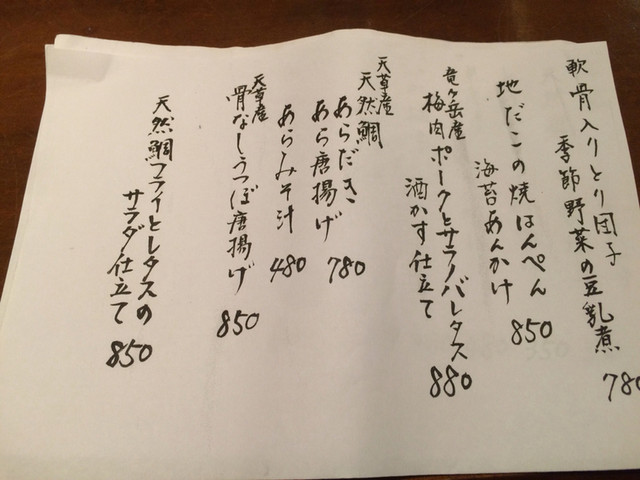 軟骨入りとり団子
季節野菜の豆乳煮
780
地だこの焼はんぺん
海苔あんかけ
850
竜ヶ岳産
梅肉ポークとサラノバレタス
酒かす仕立て
880
天草産
天然鯛
あらだき
あら唐揚げ
780
あらみそ汁
480
天草産
骨なしうつぼ唐揚げ
850
天然鯛フライとレタスの
サラダ仕立て
850